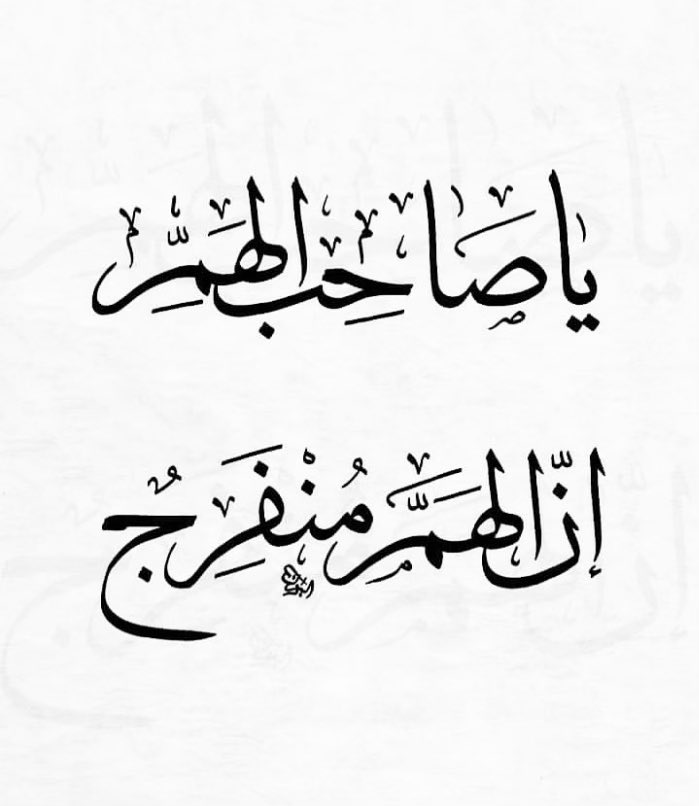 يا صَاحِبَ الهَمِّ
إنَّ الهَمَّ مُنْفَرِجٌ